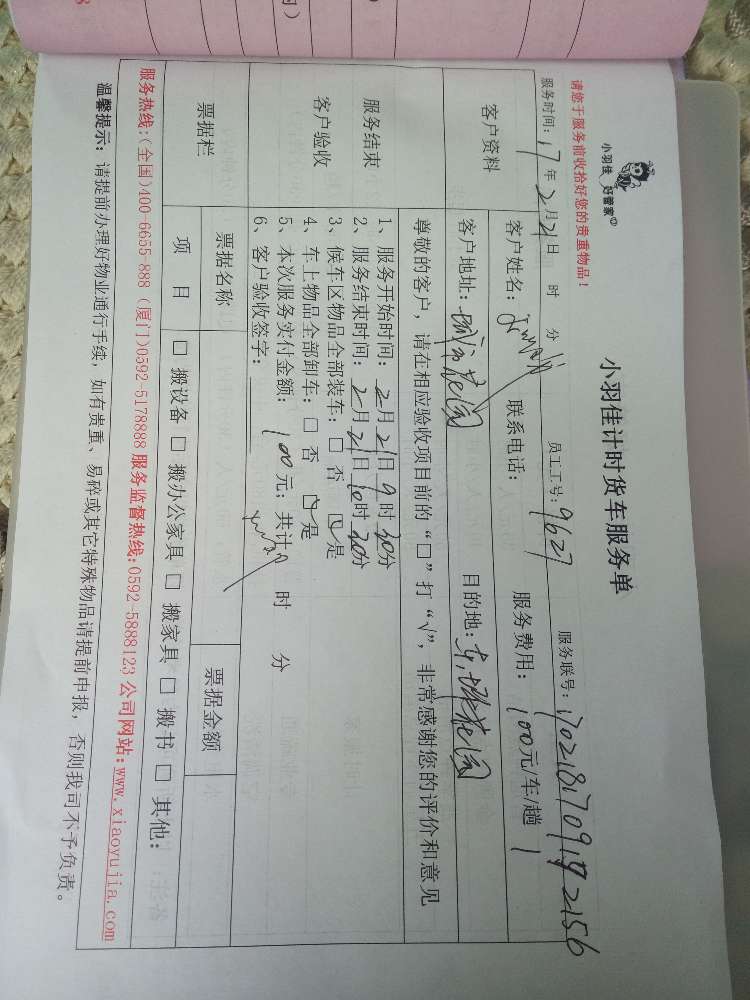 小羽佳 好管家
小羽佳计时货车服务单
请您于服务前收拾好您的贵重物品！
服务时间：17年2月21日 时 分 员工工号：9627 服务联号：
客户资料
客户姓名： 联系电话： 服务费用：100元/车/趟 1
客户地址： 花园 目的地： 花园
尊敬的客户，请在相应验收项目前的“□”打“√”，非常感谢您的评价和意见
服务结束
客户验收
1、服务开始时间：2月21日9时30分
2、服务结束时间：2月21日10时 分
3、候车区物品全部装车：□ 否 □ 是
4、车上物品全部卸车：□ 否 □ 是
5、本次服务实付金额：100元；共计 时 分
6、客户验收签字：
票据栏
票据名称 票据金额
项 目 □ 搬设备 □ 搬办公家具 □ 搬家具 □ 搬书 □ 其他：
服务热线:(全国)400-6655-888 (厦门)0592-5178888 服务监督热线:0592-5888123 公司网站:www.xiaoyujia.com
温馨提示：请提前办理好物业通行手续，如有贵重、易碎或其它特殊物品请提前申报，否则我司不予负责。